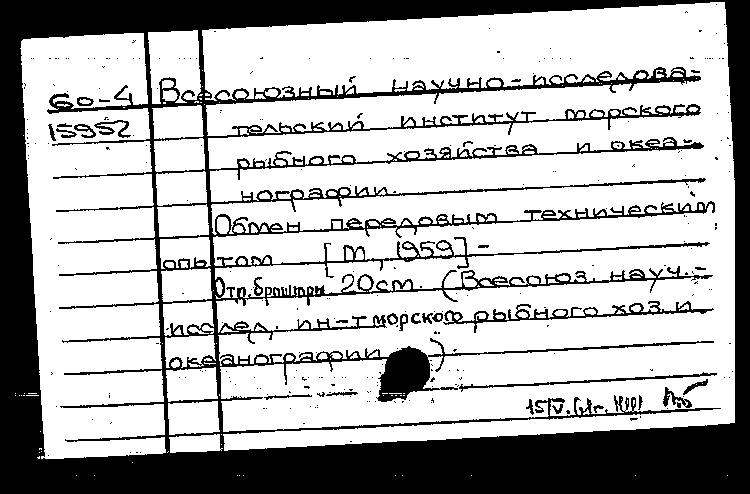 60-4 Всесоюзный научно-исследова-
15952 тельский институт морского
рыбного хозяйства и океа-
нографии.
Обмен передовым техническим
опытом. [М., 1959] -
Отд. брошюры 20 cm. (Всесоюз. науч.-
исслед. ин-т морского рыбного хоз. и
океанографии).
15/V.61г.